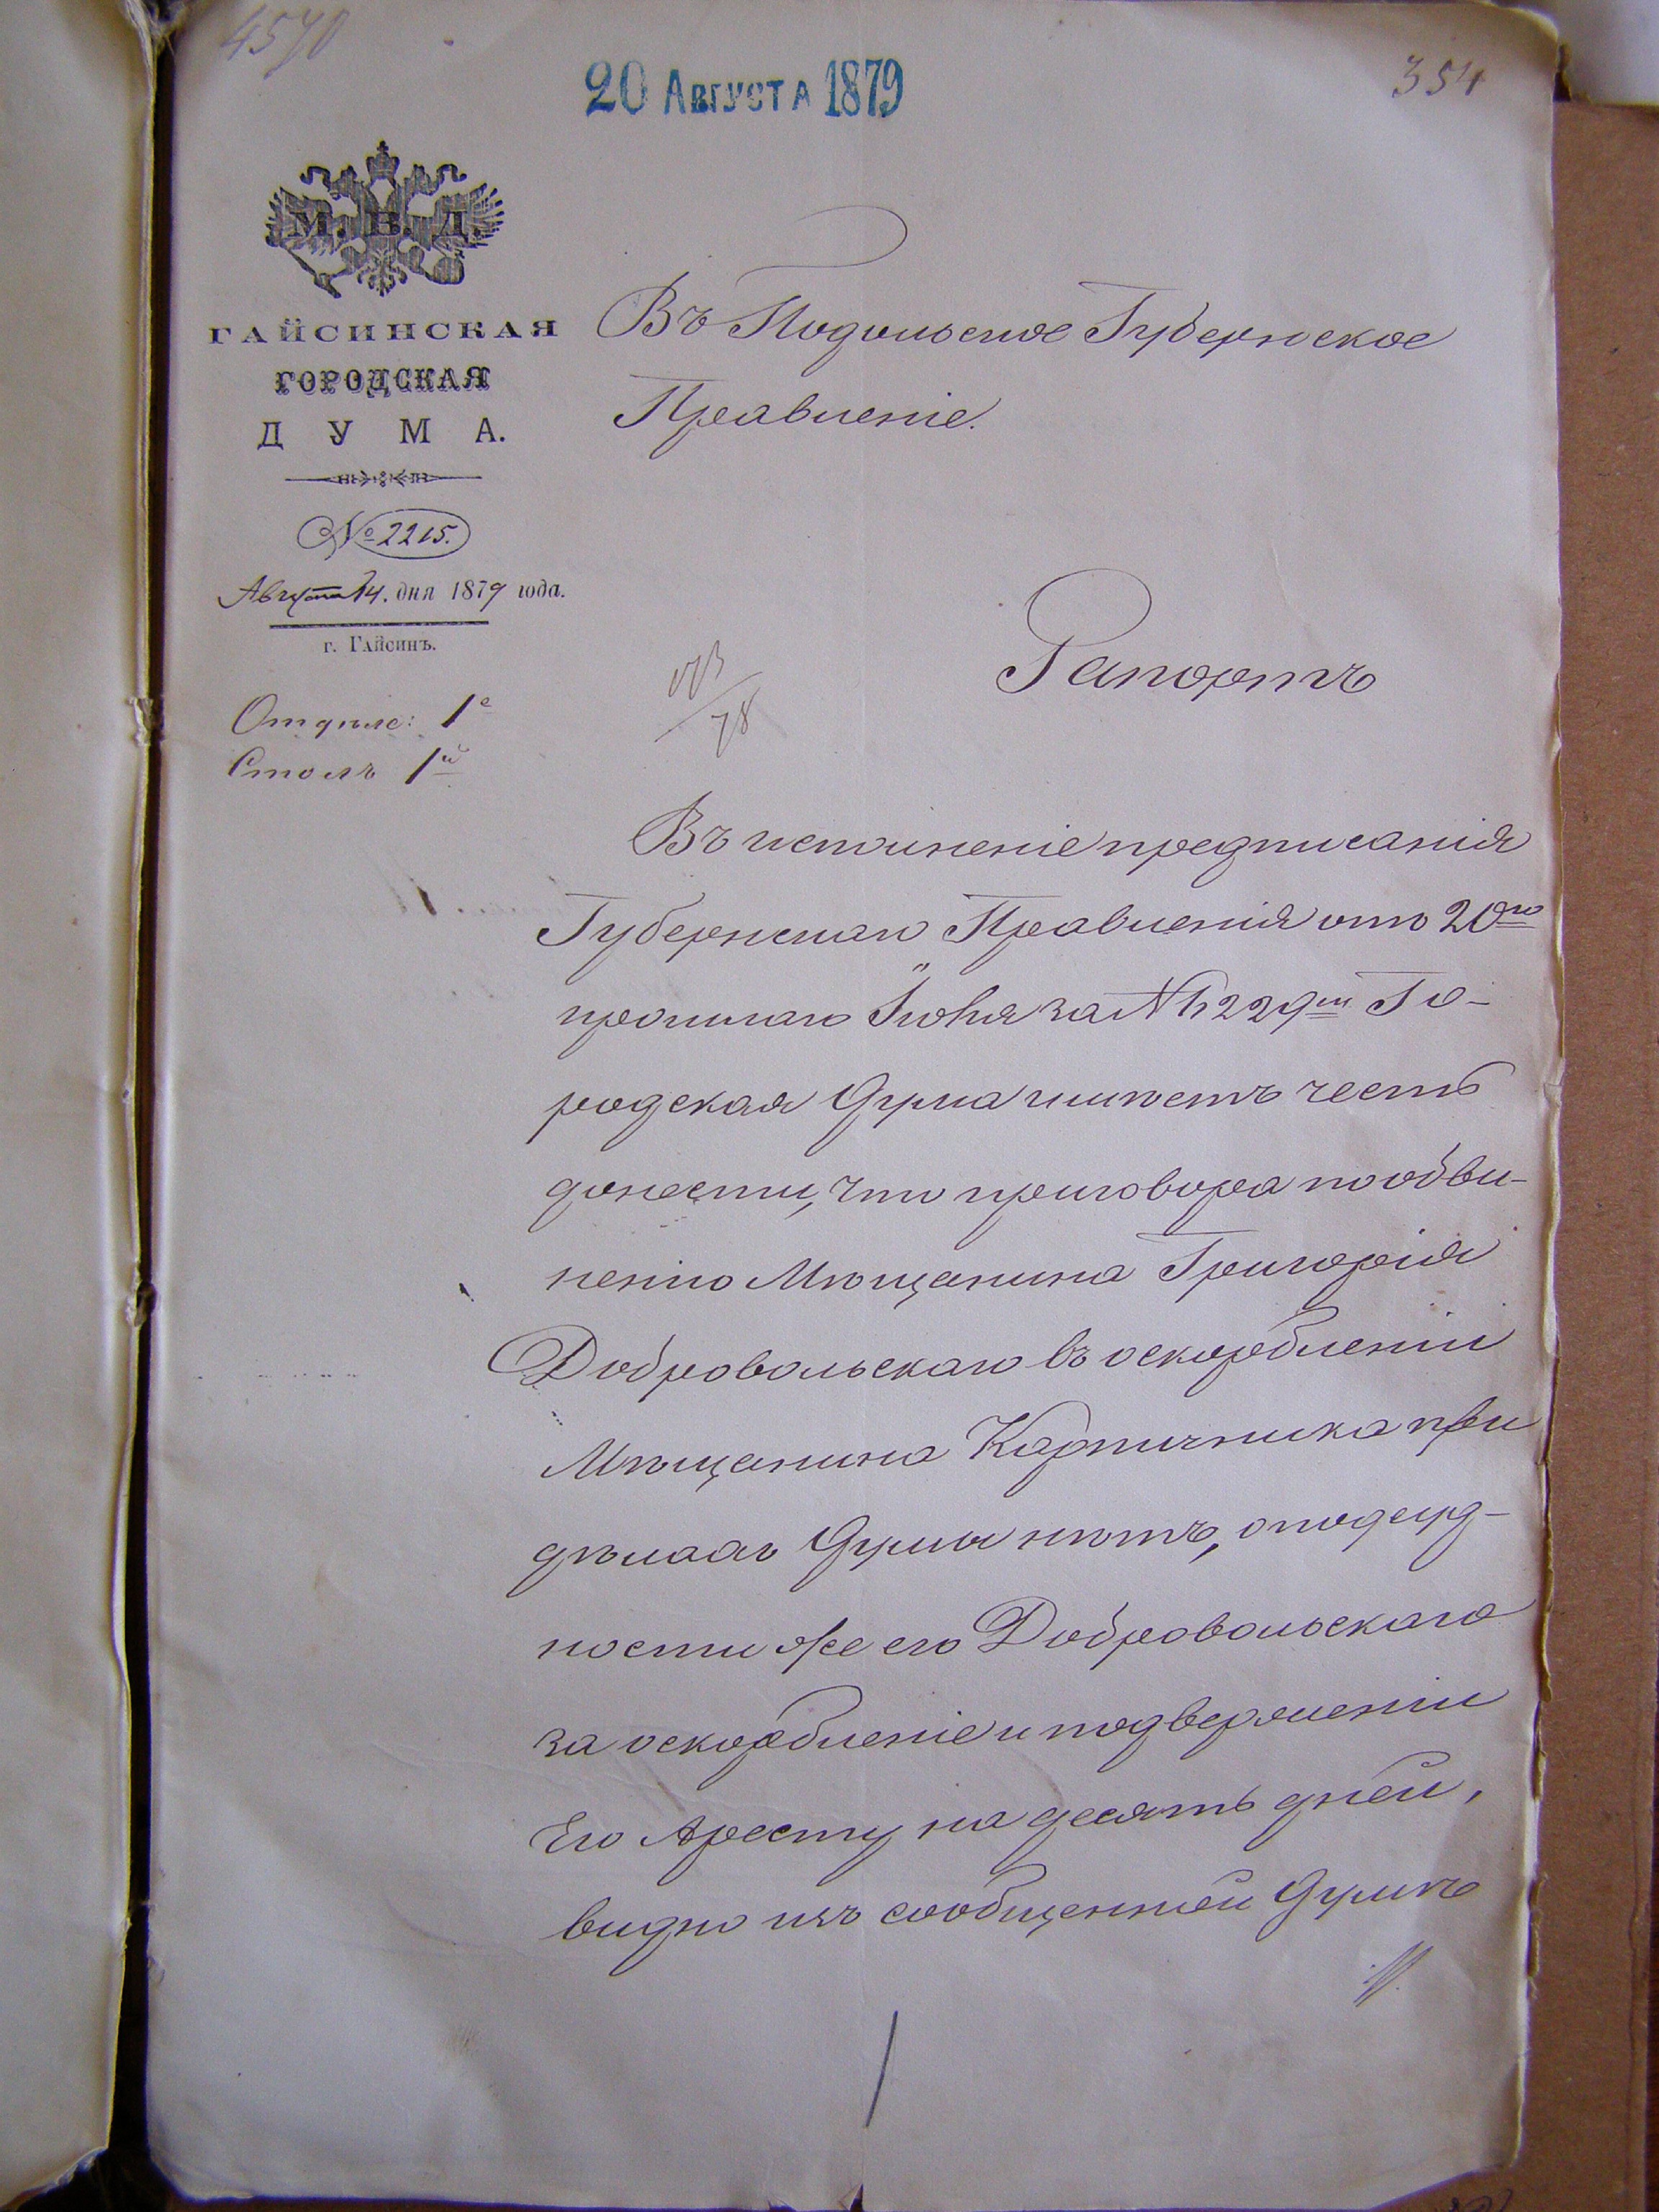 4570
20 Августа 1879
354
М. В. Д.
ГАЙСИНСКАЯ
ГОРОДСКАЯ
ДУМА.
№ 2215.
Августа 14. дня 1879 года.
г. Гайсинъ.
Отдѣле: 1е
Столъ 1й
Въ Подольское Губернское
Правленіе.
Рапортъ
78
Въ исполненіе предписанія
Губернскаго Правленія отъ 20го
прошлаго за № 229 Го-
родская Дума имѣетъ честь
донести, что приговора по обви-
ненію Мѣщанина Григорія
Добровольскаго въ оскорбленіи
Мѣщанина Карпичника при
дѣлахъ Думы нѣтъ, о подсуд-
ности же его Добровольскаго
за оскорбленіе и подверженіи
Его Аресту на десять дней,
видно изъ сообщенной Думѣ